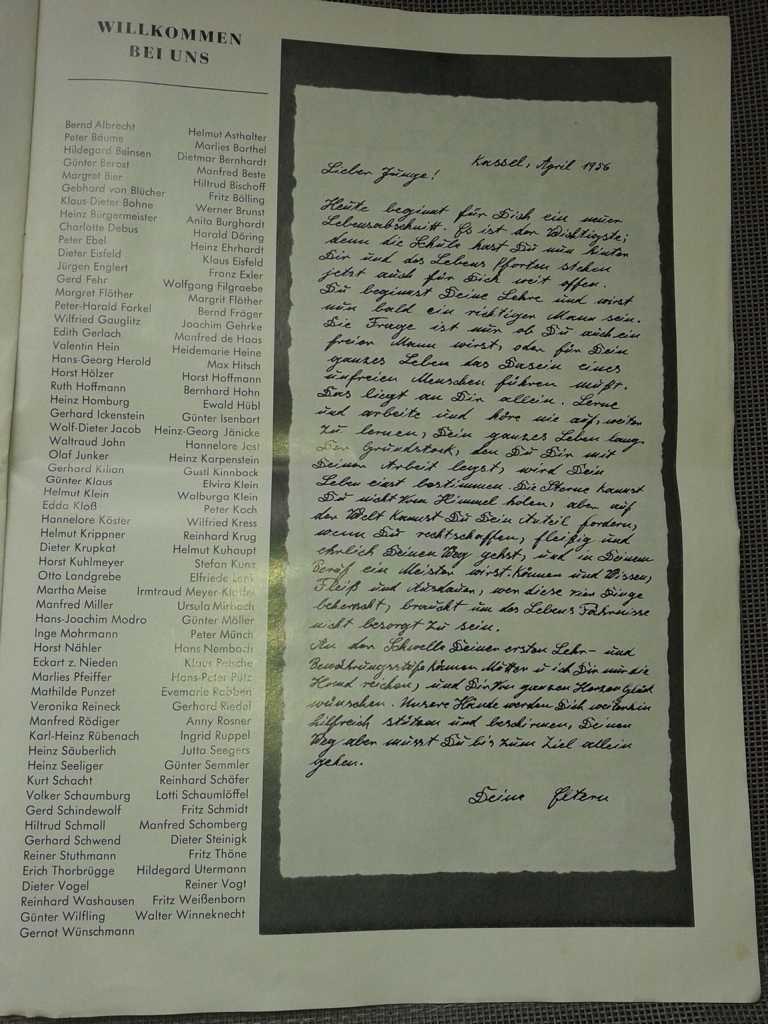 WILLKOMMEN
BEI UNS
Bernd Albrecht
Peter Bäume
Hildegard Beinsen
Günter Berost
Margret Bier
Gebhard von Blücher
Klaus-Dieter Bohne
Heinz Bürgermeister
Charlotte Debus
Peter Ebel
Dieter Eisfeld
Jürgen Englert
Gerd Fehr
Margret Flöther
Peter-Harald Forkel
Wilfried Gauglitz
Edith Gerlach
Valentin Hein
Hans-Georg Herold
Horst Hölzer
Ruth Hoffmann
Heinz Homburg
Gerhard Ickenstein
Wolf-Dieter Jacob
Waltraud John
Olaf Junker
Gerhard Kilian
Günter Klaus
Helmut Klein
Edda Kloß
Hannelore Köster
Helmut Krippner
Dieter Krupkat
Horst Kuhlmeyer
Otto Landgrebe
Martha Meise
Manfred Miller
Hans-Joachim Modro
Inge Mohrmann
Horst Nähler
Eckart z. Nieden
Marlies Pfeiffer
Mathilde Punzet
Veronika Reineck
Manfred Rödiger
Karl-Heinz Rübenach
Heinz Säuberlich
Heinz Seeliger
Kurt Schacht
Volker Schaumburg
Gerd Schindewolf
Hiltrud Schmoll
Gerhard Schwend
Reiner Stuthmann
Erich Thorbrügge
Dieter Vogel
Reinhard Washausen
Günter Wilfling
Gernot Wünschmann
Helmut Asthalter
Marlies Barthel
Dietmar Bernhardt
Manfred Beste
Hiltrud Bischoff
Fritz Bölling
Werner Brunst
Anita Burghardt
Harald Döring
Heinz Ehrhardt
Klaus Eisfeld
Franz Exler
Wolfgang Filgraebe
Margrit Flöther
Bernd Fräger
Joachim Gehrke
Manfred de Haas
Heidemarie Heine
Max Hitsch
Horst Hoffmann
Bernhard Hohn
Ewald Hübl
Günter Isenbort
Heinz-Georg Jänicke
Hannelore Jost
Heinz Karpenstein
Gustl Kinnback
Elvira Klein
Walburga Klein
Peter Koch
Wilfried Kress
Reinhard Krug
Helmut Kuhaupt
Stefan Kunz
Elfriede
Irmtraud
Ursula Mirbach
Günter Möller
Peter Münch
Hans Nembach
Klaus Petsche
Hans-Peter Pütz
Evemarie Robben
Gerhard Riedel
Anny Rosner
Ingrid Ruppel
Jutta Seegers
Günter Semmler
Reinhard Schäfer
Lotti Schaumlöffel
Fritz Schmidt
Manfred Schomberg
Dieter Steinigk
Fritz Thöne
Hildegard Utermann
Reiner Vogt
Fritz Weißenborn
Walter Winneknecht
Kassel, April 1956
Lieber Junge!
Heute beginnt für Dich ein neuer
Lebensabschnitt. Es ist der Wichtigste;
denn die Schule hast Du nun hinter
Dir und des Lebens Pforten stehen
jetzt auch für Dich weit offen.
Du beginnst Deine Lehre und wirst
nun bald ein richtiger Mann sein.
Die Frage ist nur ob Du auch ein
freier Mann wirst, oder für Dein
ganzes Leben das Dasein eines
unfreien Menschen führen mußt.
Das liegt an Dir allein. Lerne
und arbeite und höre nie auf, weiter
zu lernen, Dein ganzes Leben lang.
Der Grundstock, den Du Dir mit
Deiner Arbeit legst, wird Dein
Leben einst bestimmen. Die Sterne kannst
Du nicht vom Himmel holen, aber auf
der Welt kannst Du Dein Anteil fordern,
wenn Du rechtschaffen, fleißig und
ehrlich Deinen Weg gehst, und in Deinem
Beruf ein Meister wirst. Können und Wissen,
Fleiß und Ausdauer, wer diese vier Dinge
beherrscht, braucht um des Lebens Fährnisse
nicht besorgt zu sein.
An der Schwelle Deiner ersten Lehr- und
Bewährungsstufe können Mutter u ich Dir nur die
Hand reichen, und Dir von ganzem Herzen Glück
wünschen. Unsere Hände werden Dich weiterhin
hilfreich stützen und beschirmen, Deinen
Weg aber musst Du bis zum Ziel allein
gehen.
Deine Eltern